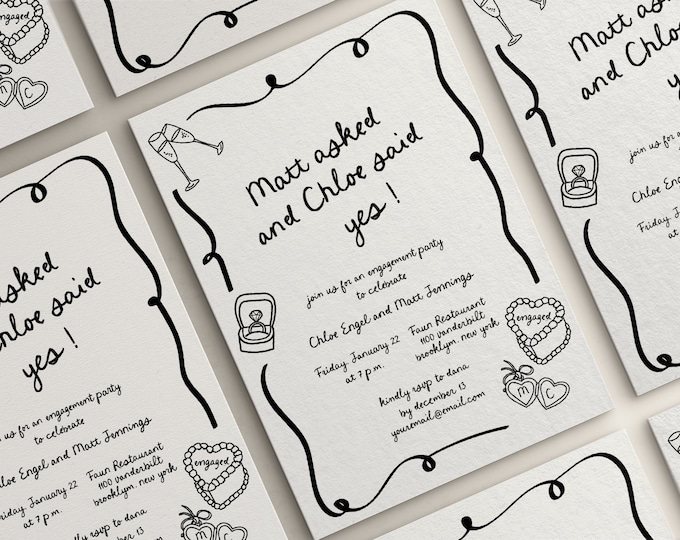 engaged
M C
Matt asked
and Chloe said
yes !
join us for an engagement party
to celebrate
Chloe Engel and Matt Jennings
Friday, January 22
at 7 p.m.
Faun Restaurant
1100 vanderbilt
brooklyn, new york
kindly rsvp to dana
by december 13
youremail@email.com
engaged
M C
asked
Chloe said
yes !
us for an engagement party
to celebrate
Engel and Matt Jennings
Friday, January 22
at 7 p.m.
Faun Restaurant
1100 vanderbilt
brooklyn, new york
kindly rsvp to dana
december 13
engaged
Matt asked
and Chloe
join us for an
Chloe Engel
Friday, January
at 7